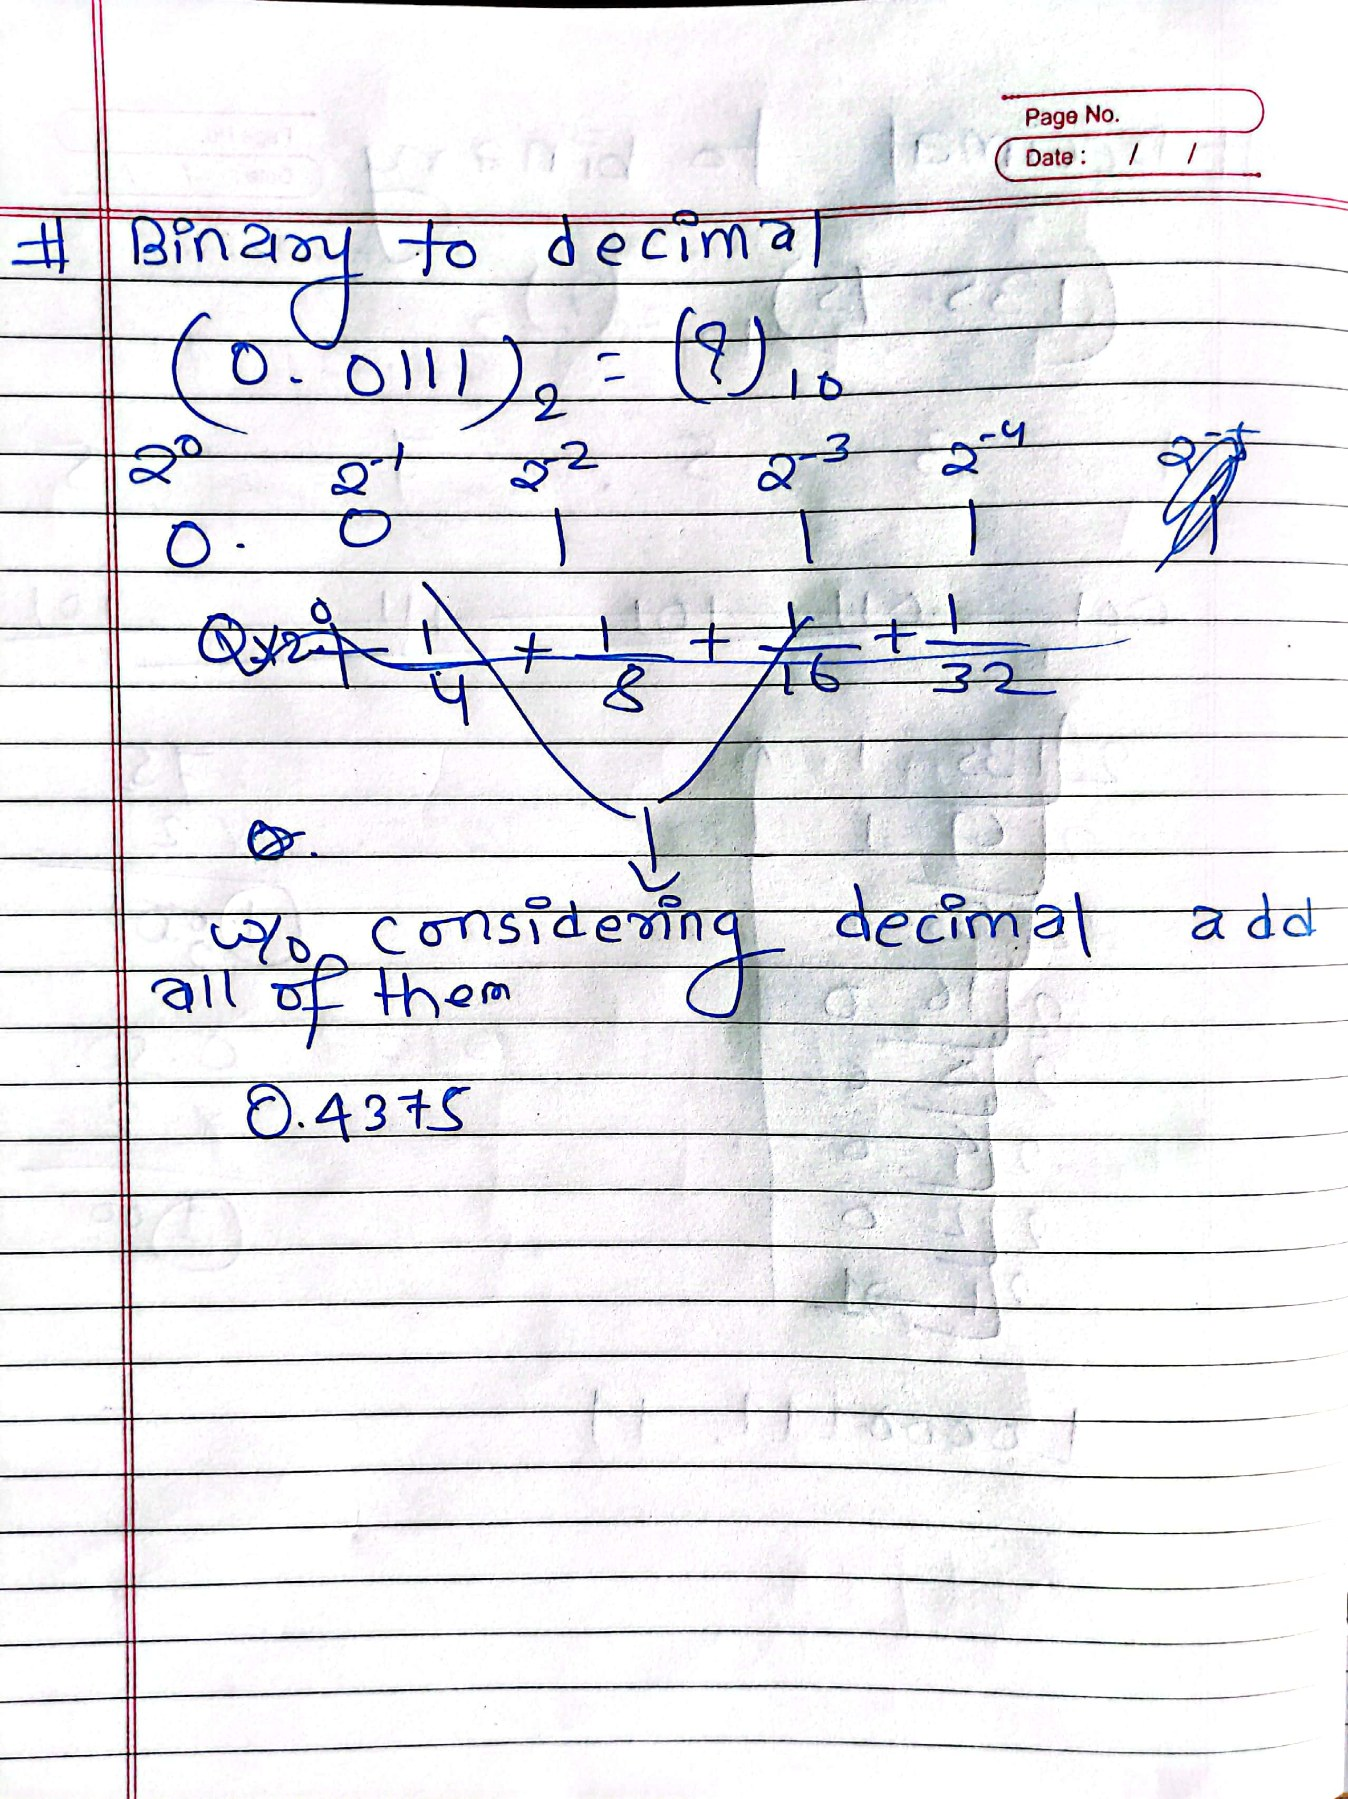 Page No.
Date : / /
# Binary to decimal
(0.0111)₂ = (?)₁₀
2⁰ 2⁻¹ 2⁻² 2⁻³ 2⁻⁴
0. 0 1 1 1 1
1/4 + 1/8 + 1/16 + 1/32
w/o considering decimal add
all of them
0.4375